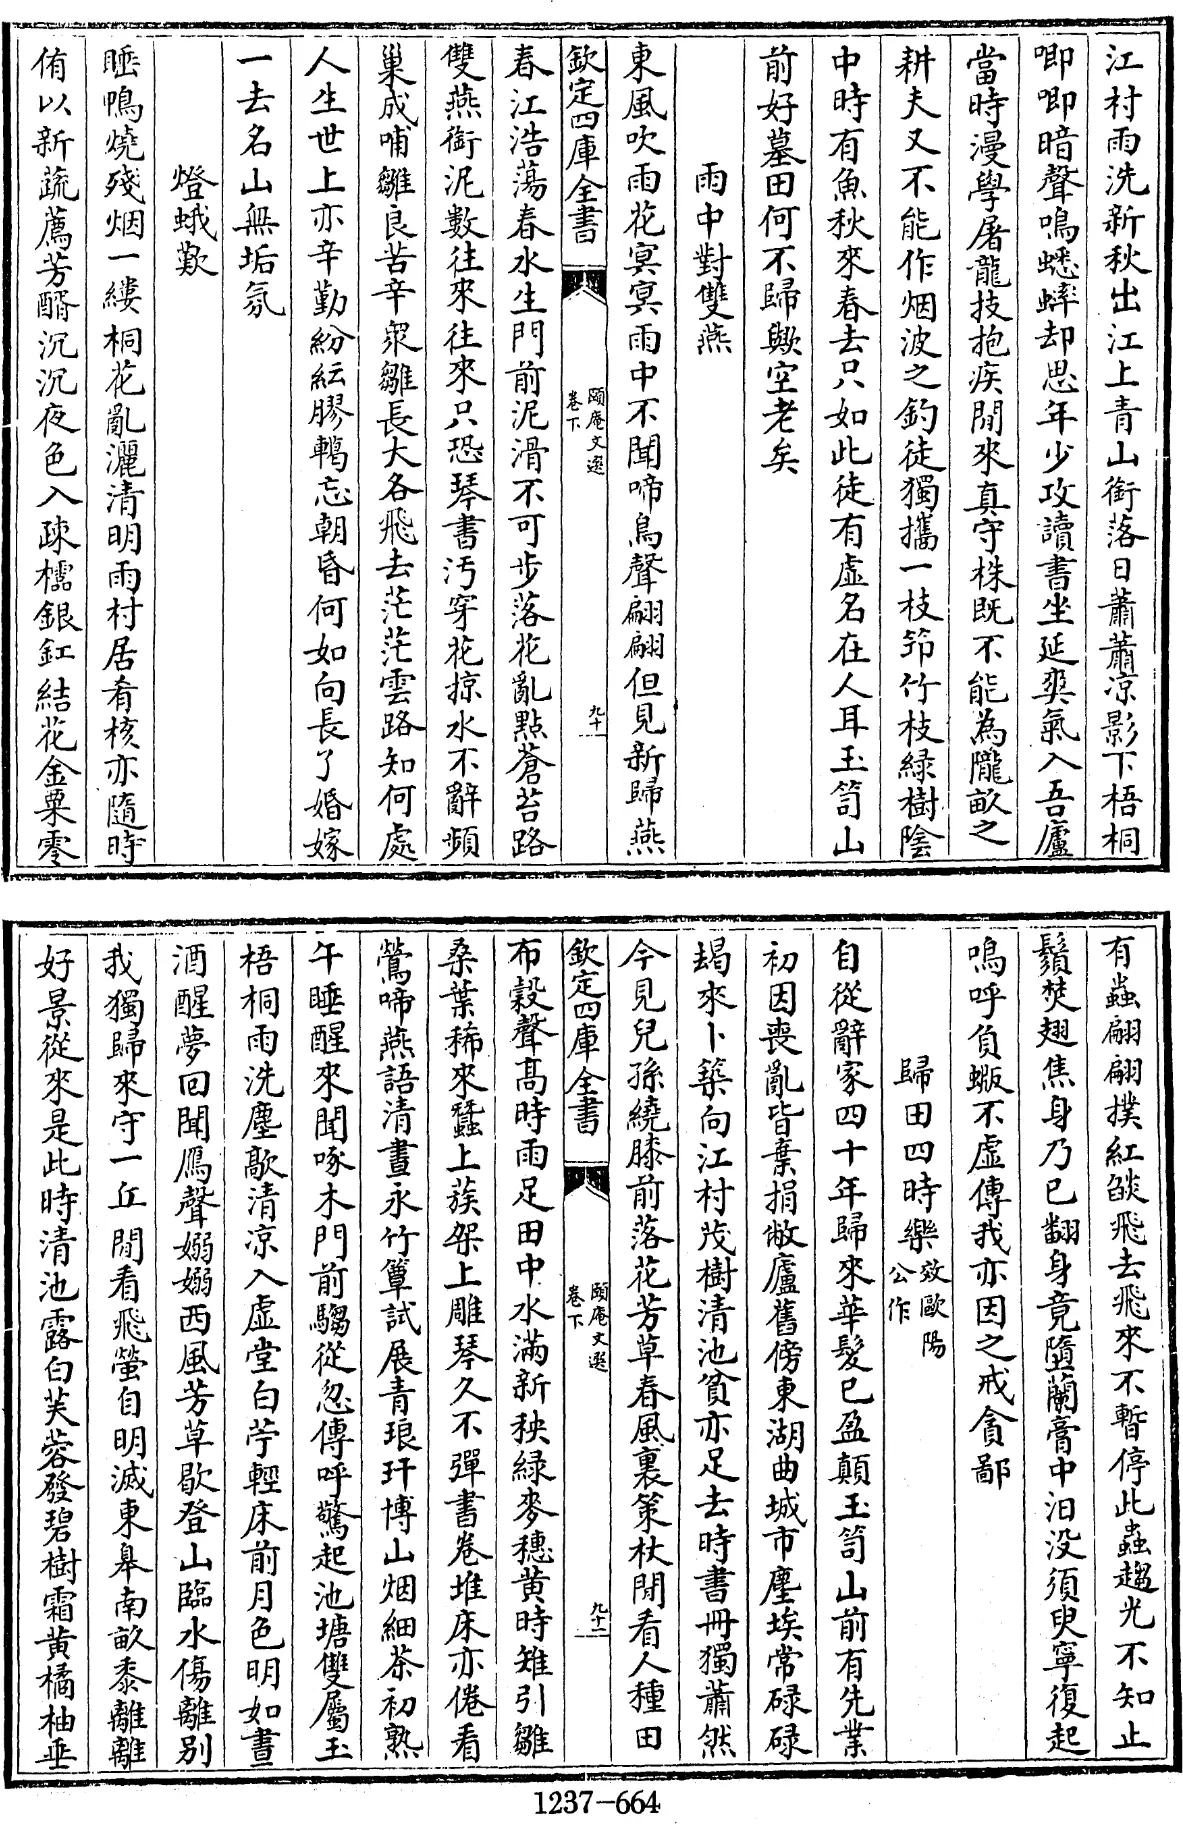 江村雨洗新秋出江上青山銜落日蕭蕭凉影下梧桐
唧唧暗聲鳴蟋蟀却思年少攻讀書坐延爽氣入吾廬
當時漫學屠龍技抱疾閒來真守株既不能為隴畝之
耕夫又不能作烟波之釣徒獨攜一枝笻竹枝綠樹陰
中時有魚秋來春去只如此徒有虛名在人耳玉笥山
前好墓田何不歸歟空老矣
雨中對雙燕
東風吹雨花冥冥雨中不聞啼鳥聲翩翩但見新歸燕
欽定四庫全書
頤庵文選
卷下
九十
春江浩蕩春水生門前泥滑不可步落花亂點蒼苔路
雙燕銜泥數往來往來只恐琴書汚穿花掠水不辭頻
巢成哺雛良苦辛衆雛長大各飛去茫茫雲路知何處
人生世上亦辛勤紛紜膠轕忘朝昏何如向長了婚嫁
一去名山無垢氛
燈蛾歎
睡鴨燒殘烟一縷桐花亂灑清明雨村居肴核亦隨時
侑以新蔬薦芳醑沉沉夜色入疎櫺銀釭結花金粟零
有蟲翩翩撲紅燄飛去飛來不暫停此蟲趨光不知止
鬚焚翅焦身乃已翻身竟墮蘭膏中汨没須臾寧復起
嗚呼負蝂不虛傳我亦因之戒貪鄙
歸田四時樂效歐陽公作
自從辭家四十年歸來華髮已盈顛玉笥山前有先業
初因喪亂皆棄捐敝廬舊傍東湖曲城市塵埃常碌碌
朅來卜築向江村茂樹清池貧亦足去時書冊獨蕭然
今見兒孫繞膝前落花芳草春風裏策杖閒看人種田
欽定四庫全書
頤庵文選
卷下
九十一
布穀聲高時雨足田中水滿新秧綠麥穗黄時雉引雛
桑葉稀來蠶上蔟架上雕琴久不彈書卷堆床亦倦看
鶯啼燕語清晝永竹簟試展青琅玕博山烟細茶初熟
午睡醒來聞啄木門前騶從忽傳呼驚起池塘雙屬玉
梧桐雨洗塵歊清凉入虛堂白苧輕床前月色明如晝
酒醒夢回聞鴈聲嫋嫋西風芳草歇登山臨水傷離別
我獨歸來守一丘閒看飛螢自明滅東皋南畝黍離離
好景從來是此時清池露白芙蓉發碧樹霜黄橘柚垂
1237-664